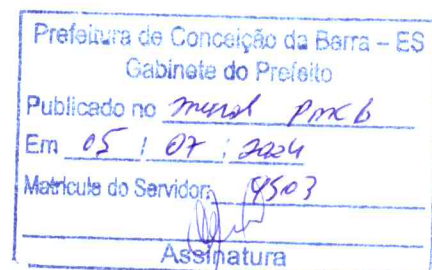 Prefeitura de Conceição da Barra – ES
Gabinete do Prefeito
Publicado no mural PMCB
Em 05 / 07 / 2024
Matricula do Servidor: 4503
Assinatura